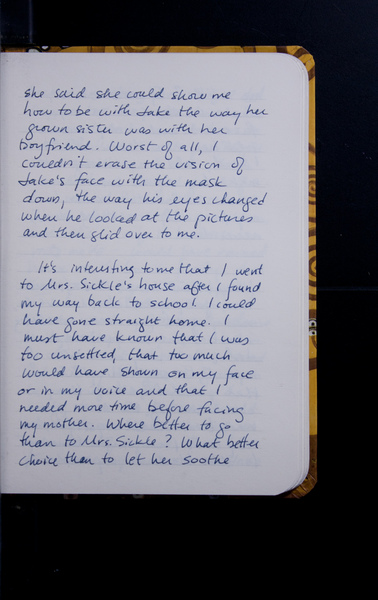 she said she could show me
how to be with Jake the way her
grown sister was with her
boyfriend. Worst of all, I
couldn't erase the vision of
Jake's face with the mask
down, the way his eyes changed
when he looked at the pictures
and then slid over to me.
It's interesting to me that I went
to Mrs. Sickle's house after I found
my way back to school. I could
have gone straight home. I
must have known that I was
too unsettled, that too much
would have shown on my face
or in my voice and that I
needed more time before facing
my mother. Where better to go
than to Mrs. Sickle? What better
choice than to let her soothe